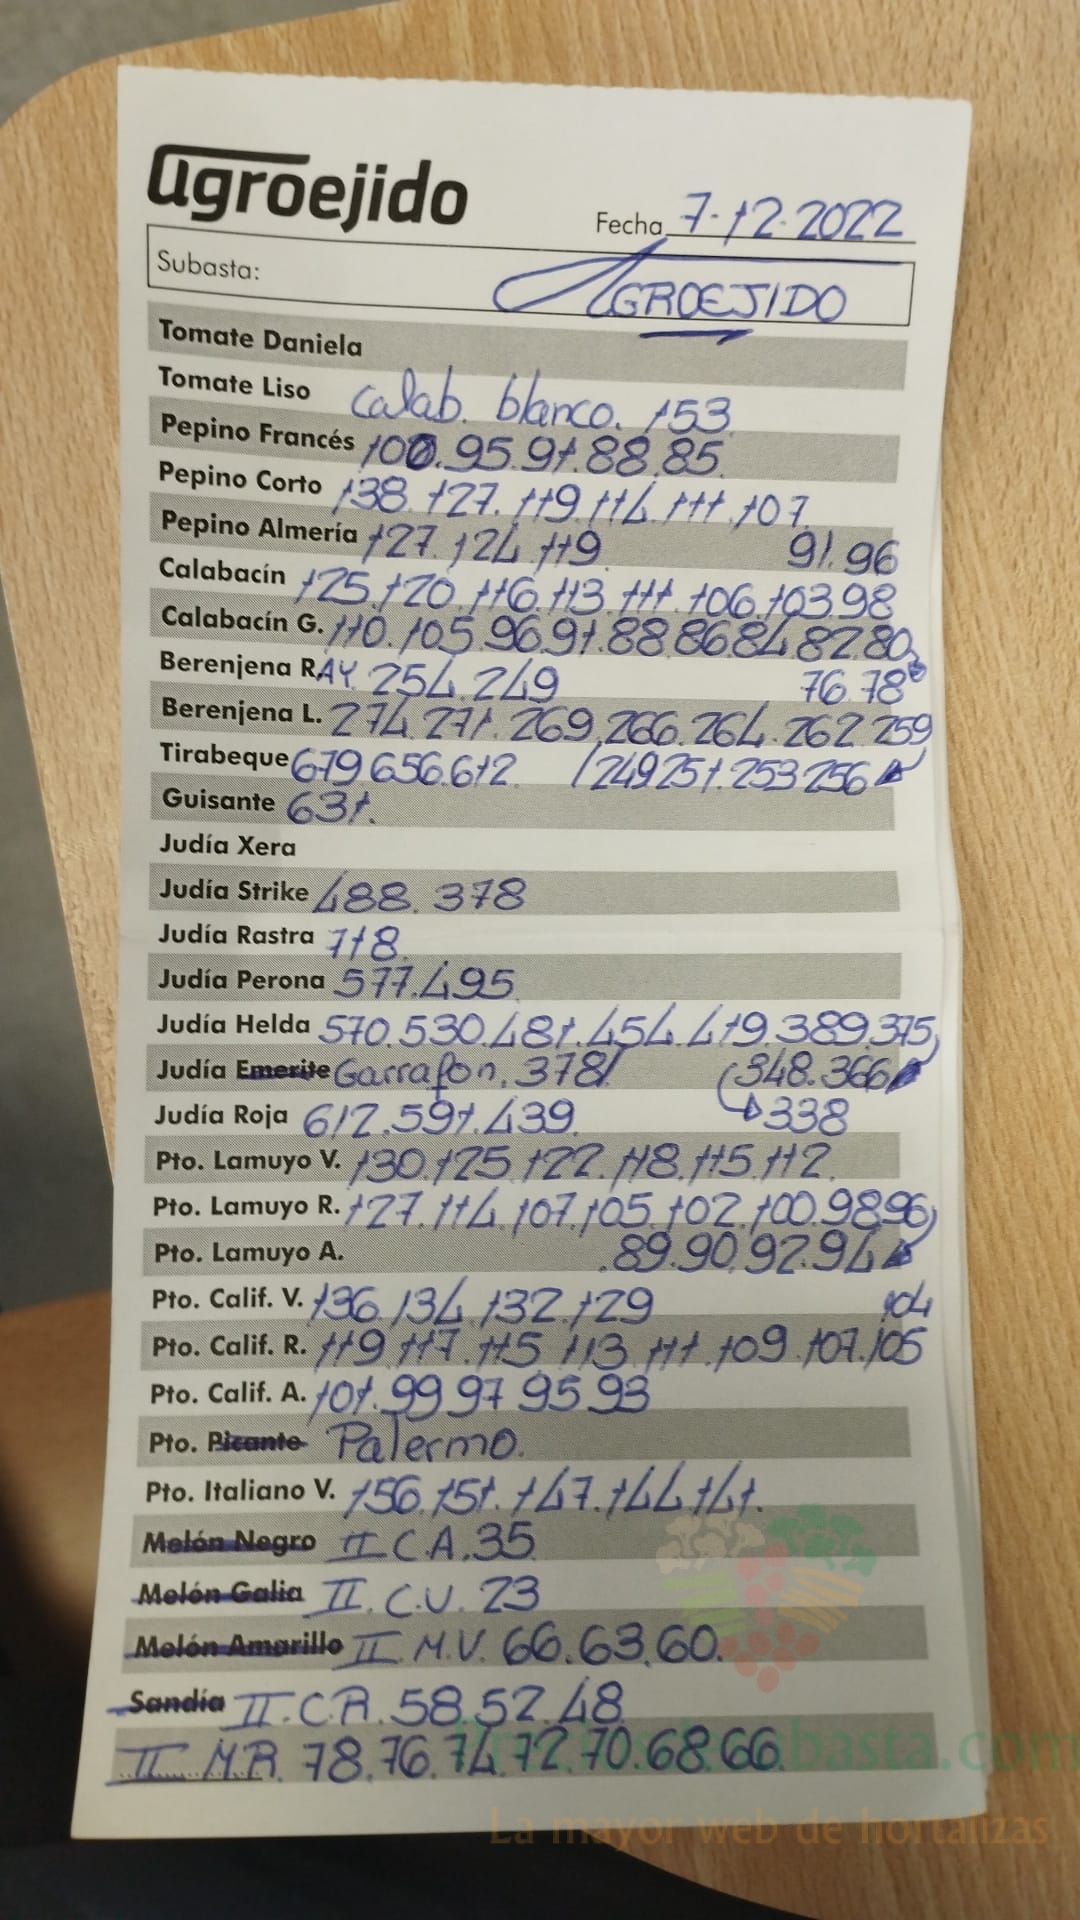 agroejido
Fecha 7-12-2022
Subasta: AGROEJIDO
Tomate Daniela
Tomate Liso calab. blanco. 153
Pepino Francés 100.95.91.88.85.
Pepino Corto 138.127.119.114.111.107
Pepino Almería 127.124.119. 91.96
Calabacín 125.120.116.113.111.106.103.98
Calabacín G. 110.105.96.91.88.86.84.82.80
Berenjena RAY. 254.249 76.78
Berenjena L. 274.271.269.266.264.262.259
Tirabeque 679.656.612. 249.251.253.256
Guisante 631.
Judía Xera
Judía Strike 488.378
Judía Rastra 718.
Judía Perona 577.495
Judía Helda 570.530.481.454.419.389.375
Judía Emerite Garrafon. 378 348.366
Judía Roja 612.591.439. 338
Pto. Lamuyo V. 130.125.122.118.115.112.
Pto. Lamuyo R. 127.114.107.105.102.100.98.96
Pto. Lamuyo A. .89.90.92.94
Pto. Calif. V. 136.134.132.129 104
Pto. Calif. R. 119.117.115.113.111.109.107.105
Pto. Calif. A. 101.99.97.95.93
Pto. Picante Palermo.
Pto. Italiano V. 156.151.147.144.141.
Melón Negro II C.A.35
Melón Galia II.C.V.23
Melón Amarillo II.M.V. 66.63.60.
Sandía II.C.R.58.52.48
II M.R. 78.76.74.72.70.68.66.
La mayor web de hortalizas